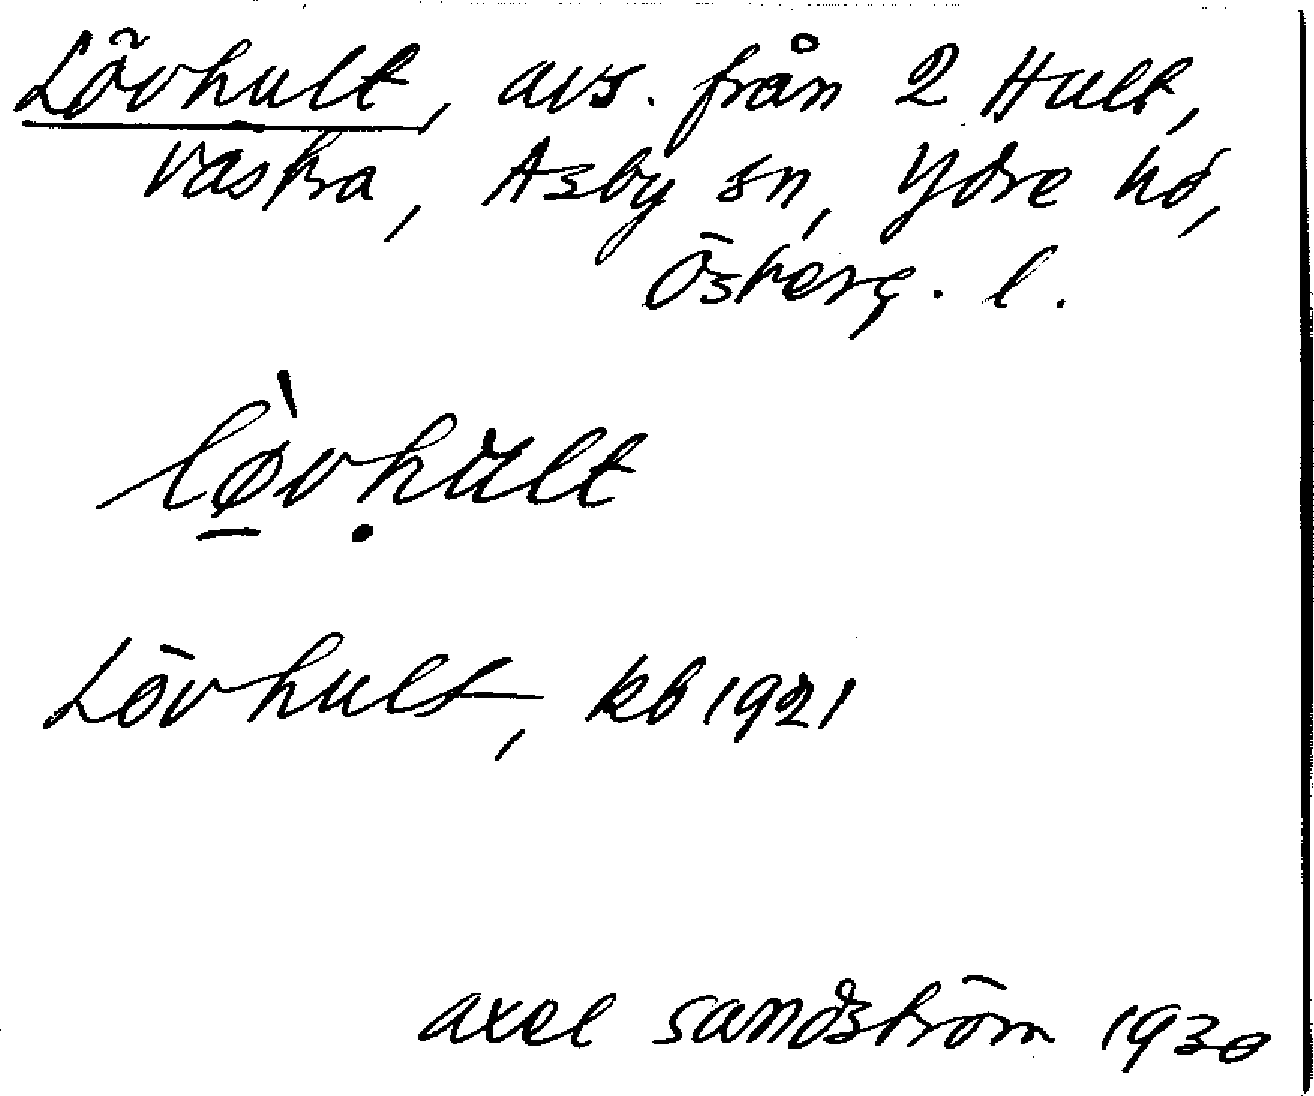 Lövhult, avs. från 2 Hult,
Västra, Asby sn, Ydre hd,
Österg. l.
lø̠̀vḥult
Lövhult, kb 1921
Axel Sandström 1930